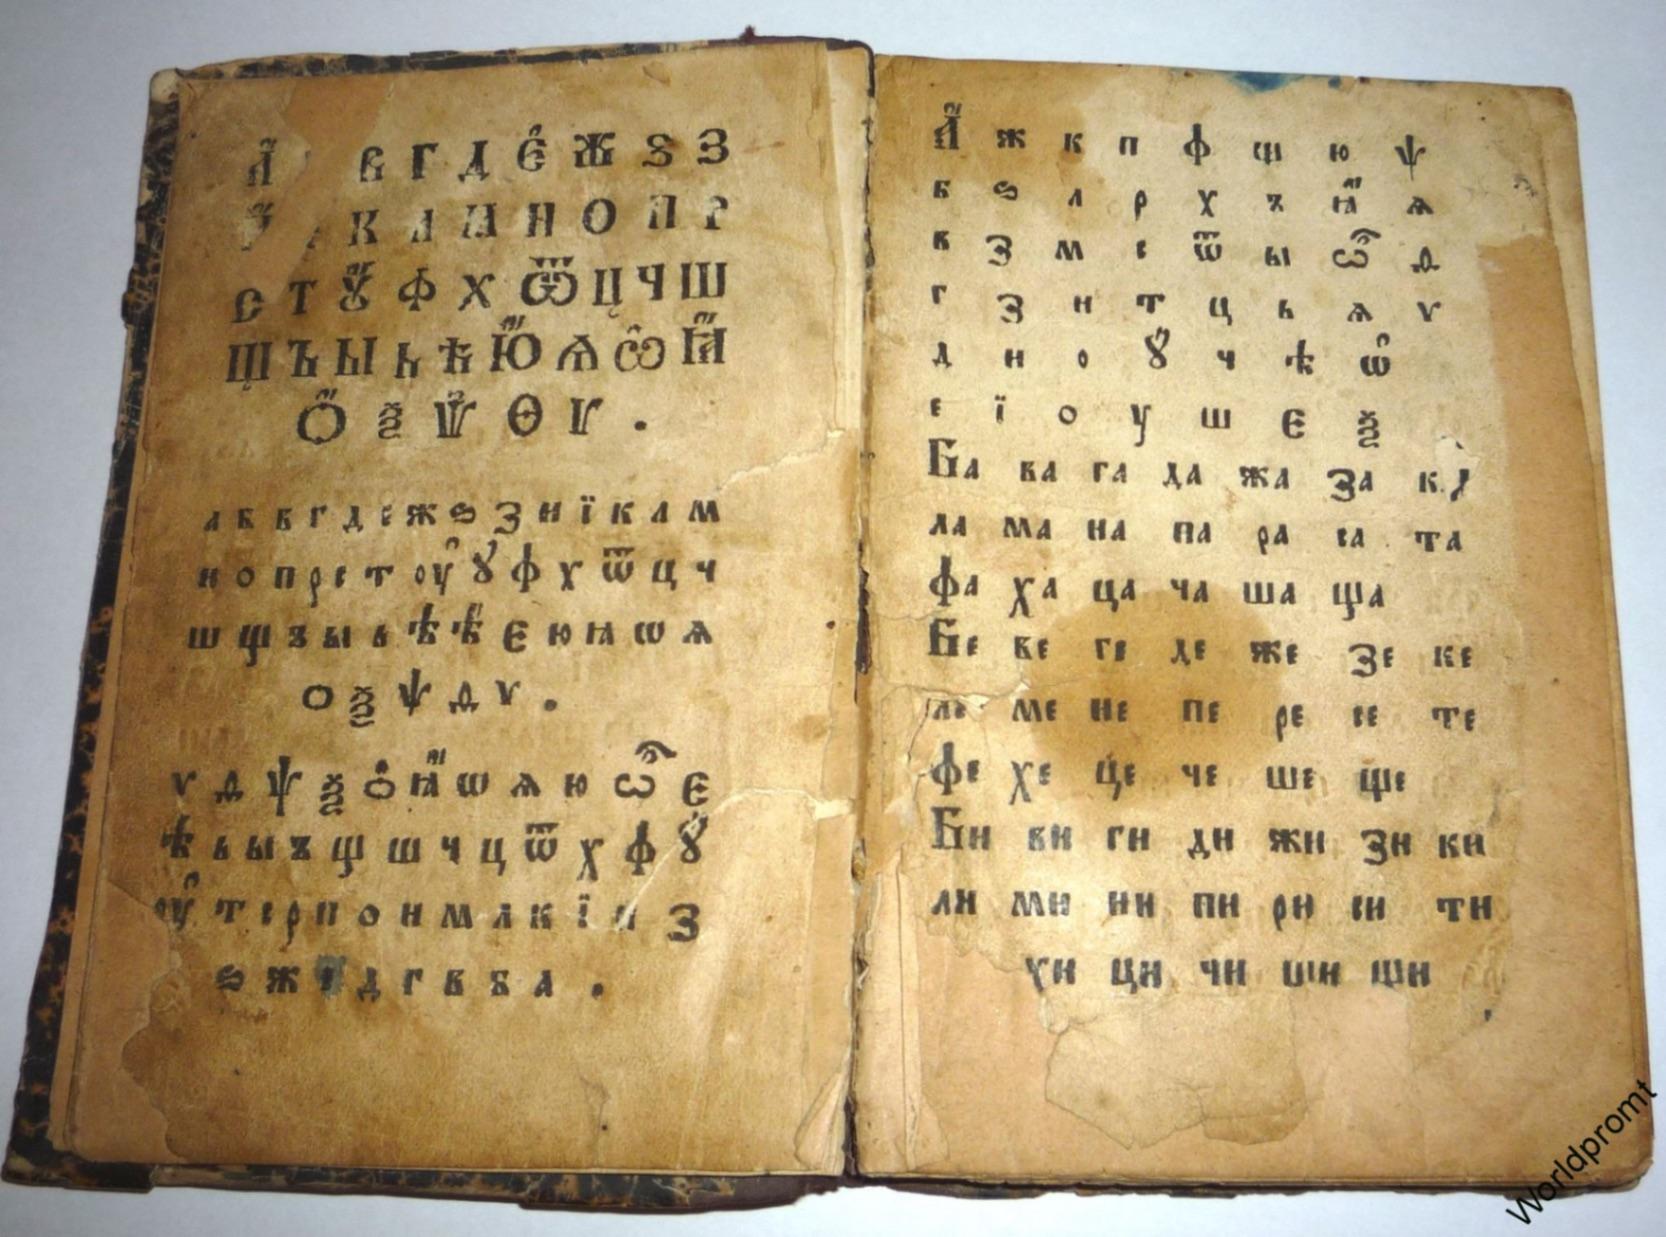 А В Г Д Е Ж Ѕ З
К Л М Н О П Р
С Т Ꙋ Ф Х Ѿ Ц Ч Ш
Щ Ъ Ы Ь Ѣ Ю Ѧ Ѽ Ꙗ
Ѻ Ѯ Ѱ Ѳ Ѵ .
а б в г д е ж ѕ з и ї к л м
н о п р с т оу ꙋ ф х ѿ ц ч
ш щ ъ ы ь ѣ ѣ є ю ꙗ ѡ ѧ
ѻ ѯ ѱ ѳ ѵ .
ѵ ѳ ѱ ѯ ѻ ꙗ ѡ ѧ ю ѽ є
ѣ ь ы ъ щ ш ч ц ѿ х ф ꙋ
оу т с р п о н м л к ї и з
ѕ ж д г в б а .
А ж к п ф щ ю ѱ
б ѕ л р х ъ ꙗ ѧ
в з м с ѿ ы ѽ ѳ
г з н т ц ь ѧ ѵ
д и о ꙋ ч ѣ ѡ
е ї о у ш є ѯ
Ба ва га да жа за ка
ла ма на па ра са та
фа ха ца ча ша ща
Бе ве ге де же зе ке
ле ме не пе ре се те
фе хе це че ше ще
Би ви ги ди жи зи ки
ли ми ни пи ри си ти
хи ци чи ши щи
Worldpromt